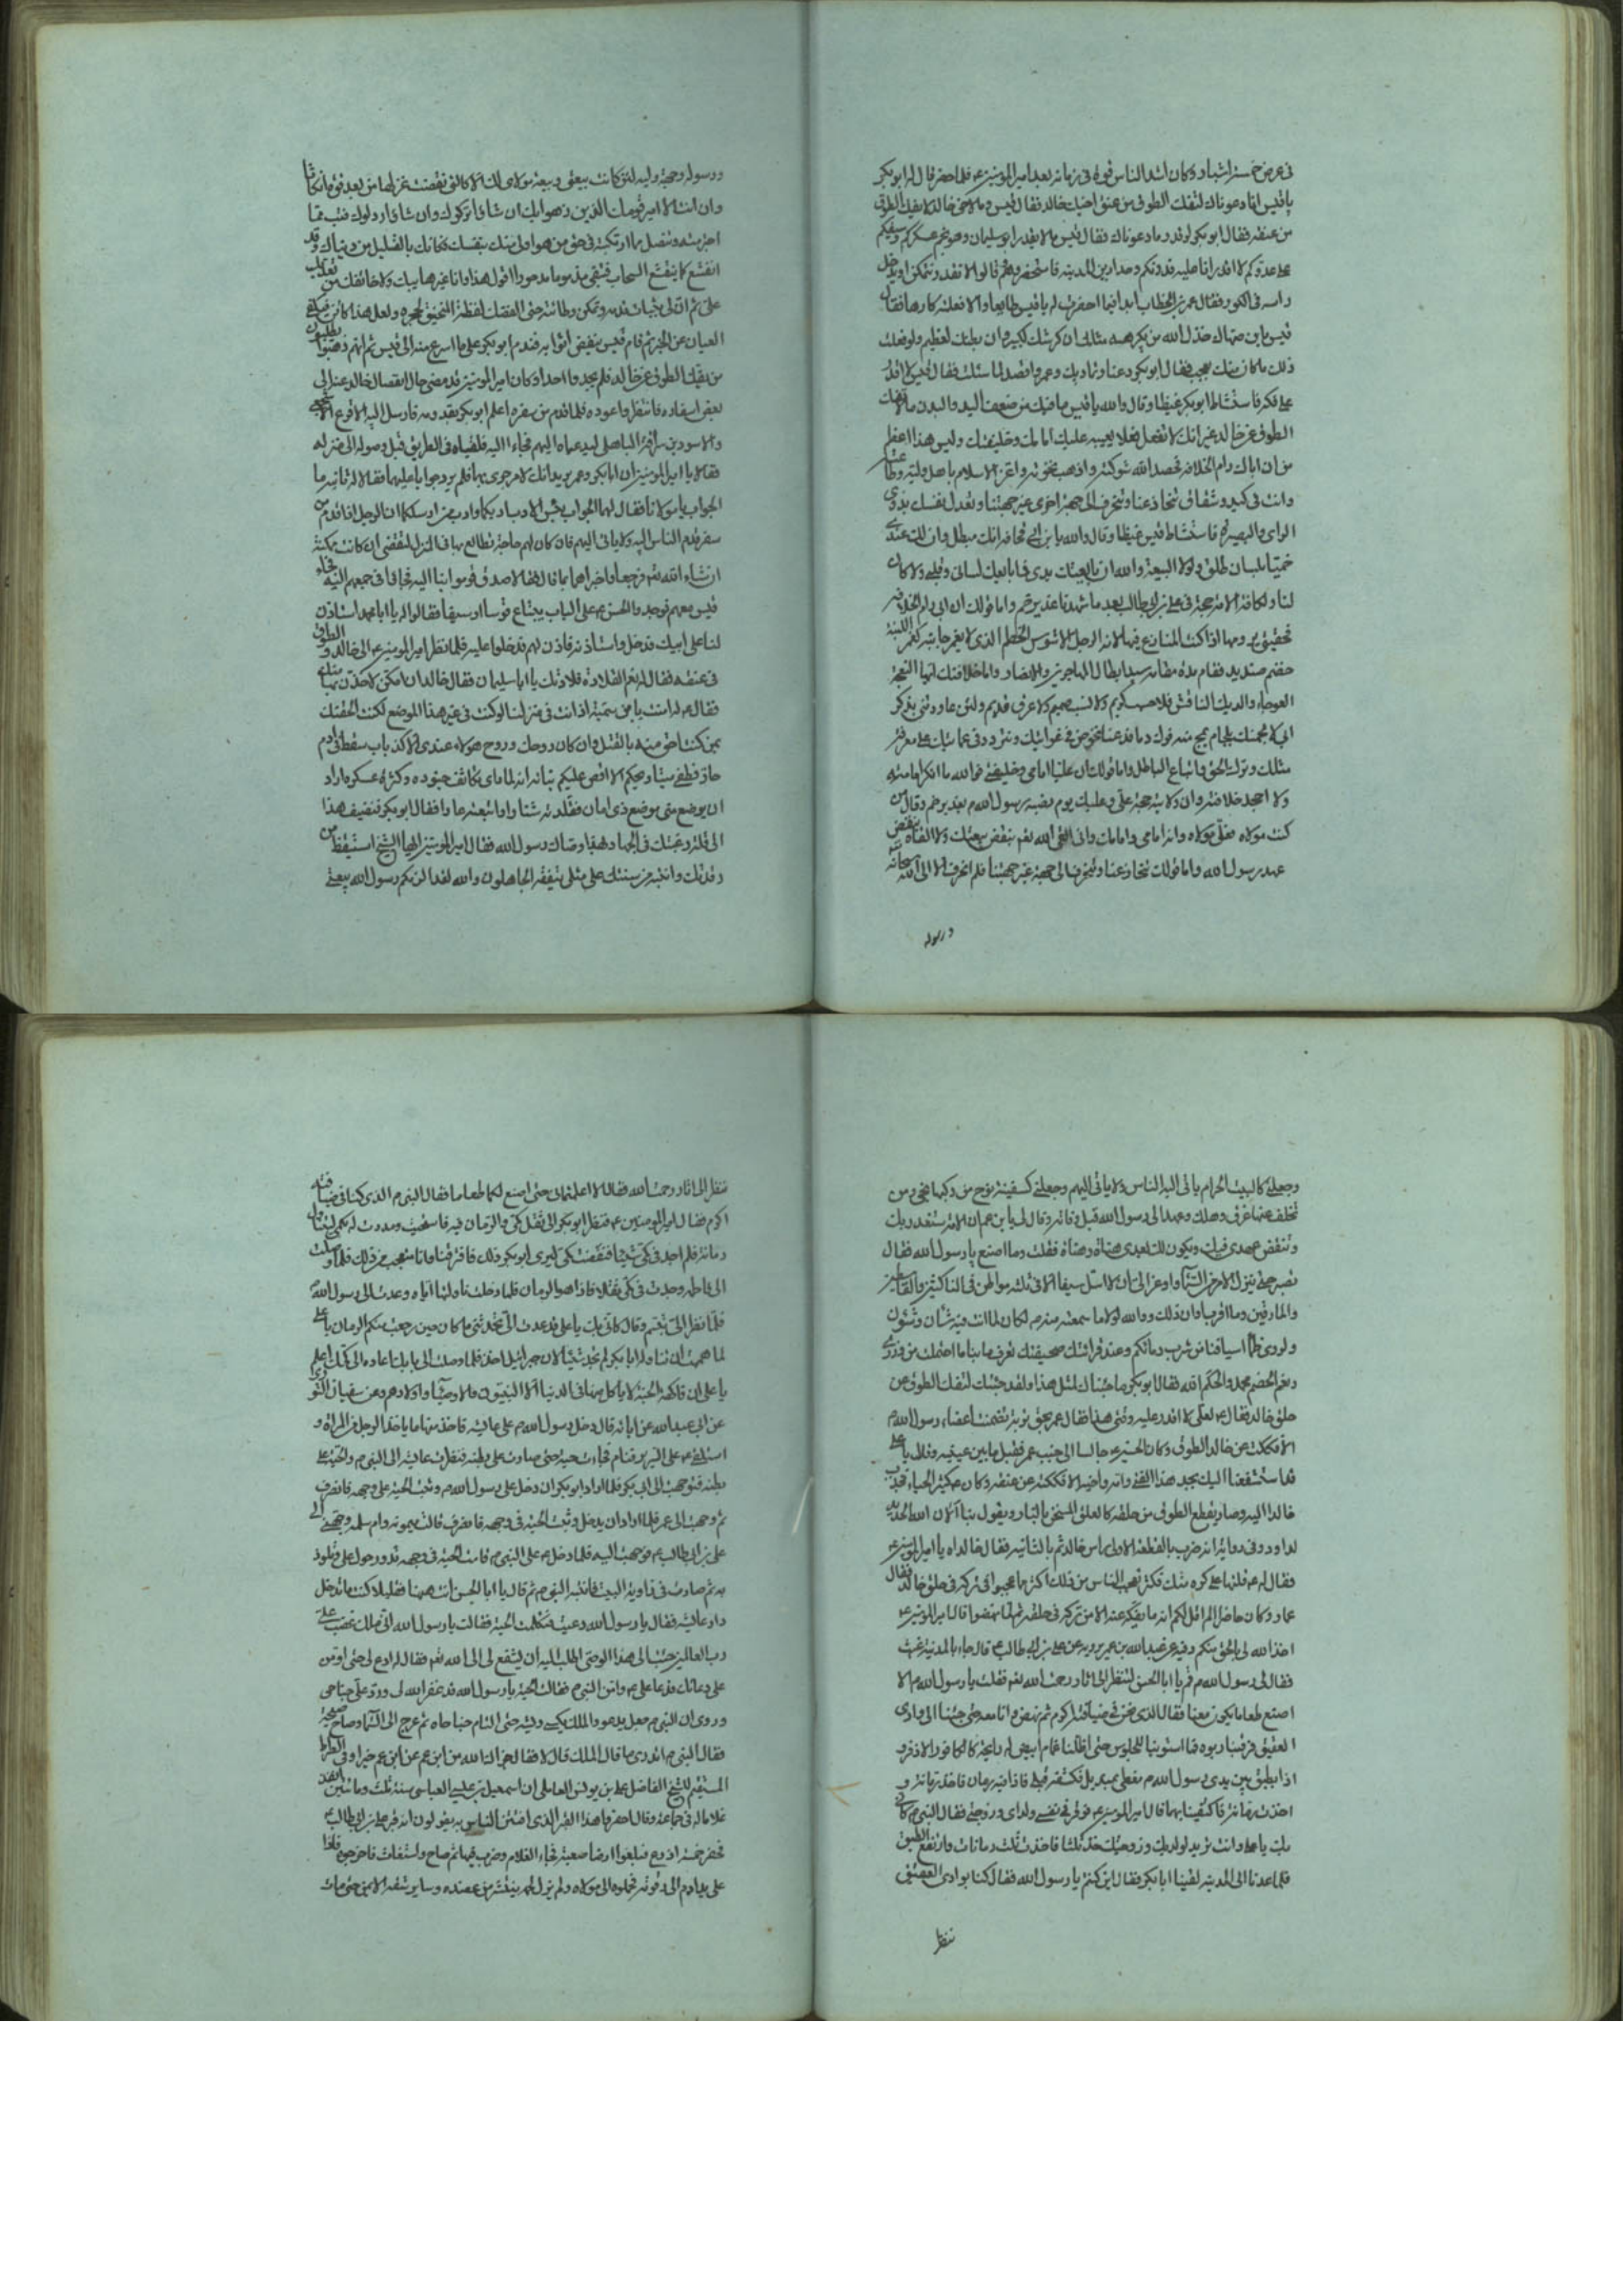 في عرض خمسة اشبار وكان اشد الناس قوة في زمانه بعد امير المؤمنين ع فلما حضر قال له ابو بكر
يا قيس انا دعوناك لتفك الطوق من عنق اخيك خالد فقال قيس ولم لا يفك خالد الطوق
من عنقه فقال ابو بكر لا يقدر وما دعوناك فقال قيس ما لا يقدر ابو سليمان وهو نجم عسكركم وسيفكم
على عدوكم لا اقدر انا عليه
راسه في الكور فقال عمر بن الخطاب
قيس يابن صهاك خذل الله من يكرهه مثلك ان كرشك لكبيرة وان بطنك لعظيم ولو فعلت
ذلك ما كان منك بعجب فقال ابو بكر دعنا وتماديك وعمر واقصد لما سئلت فقال قيس لا اقدر
على فكه فاستشاط ابو بكر غيظا وقال والله يا قيس ما فيك من ضعف اليد والبدن
الطوق عن خالد غير انك لا تفعل فعلا يعيبه عليك امامك وخليفتك وليس هذا اعظم
من ان اباك رام الخلافة فحصد الله شوكته واذهب نخوته واعز الاسلام باهل وليته
وانت في كيد وشقاق تنحاز عنا وتنحرف الى جهة اخرى غير جهتنا وتعدل نفسك بذوي
الراي والبصيرة فاستشاط قيس غيظا وقال والله يابن ابي قحافة انك مبطل وان لك عندي
بلسان طلق ولولا البيعة والله ان بايعتك يدي فما بايعك لساني وقلبي ولا كان
لنا ولكافة الامة حجة في علي بن ابي طالب بعد ما شهدنا غدير خم واما قولك ان ابي رام الخلافة
المنازع فيها لانه الرجل الذي لا يغمز جانبه كغمز اللينة
سيد ابطال المهاجرين والانصار واما خلافتك ايها النعجة
العوجاء والديك النافش فلا حسب كريم ولا نسب صميم ولا عرف قديم ولئن عاودتني بذكر
ابي لالجمنك بلجام يمج منه فوك دما فدعنا نخوض في غوايتك ونتردى في عمايتك على معرفة
مثلك وترك الحق واتباع الباطل واما قولك ان عليا امامي وخليفتي فوالله ما انكر امامته
ولا اجحد خلافته وان ولايته حجة علي وعليك يوم نصبه رسول الله ص بغدير خم وقال من
كنت مولاه فعلي مولاه وانه امامي وامامك واني القى الله بنقض بيعتك ولا القاه بنقض
عهد رسول الله واما قولك تنحاز عنا وتنحرف الى جهة غير جهتنا فلم انحرف الا الى الله سبحانه
ورسوله
ورسوله وحجته ووليه لئن كانت بيعتي وبيعة مولاي لك الا كالتي نقضت غزلها من بعد قوة انكاثا
وان انت الا امير قومك الذين نصبوا بك ان شاؤا تركوك وان شاؤا ردلوك فتب مما
اجترمته وتنصل مما ارتكبته في حق من هو اولى منك بنفسك فكانك بالقليل من دنياك وقد
انقشع كما ينقشع السحاب فتبقى مذموما مدحورا اقول هذا وانا غير هايبك ولا خائفك
على ثبات قدم وتمكن وطانة حتى الفظك لفظة المنجنيق الحجرة ولعل هذا كائن فيكفي
العيان عن الخبر ثم قام قيس ينفض اثوابه فندم ابو بكر على ما اسرع منه الى قيس ثم انهم ذهبوا يطلبون
من يفك الطوق عن خالد فلم يجدوا احدا وكان امير المؤمنين قد مضى حال انفصال خالد عنه الى
بعض اسفاره فانتظروا عوده فلما قدم من سفره اعلم ابو بكر بقدومه فارسل اليه الاقرع
والاسود بن الباهلي ليدعياه اليهم فجاءا اليه فلقياه في الطريق قبل وصوله الى منزله
فقالا يا امير المؤمنين ان ابا بكر وعمر يريدانك لامر جرى بهما فلم يرد جوابا عليهما فقالا له ثانية ما
الجواب يا مولانا فقال لهما الجواب بئس الادب ادبكما وادب من ارسلكما ان الرجل اذا قدم من
سفر قدم الناس اليه ولا ياتي اليهم فان كان لهم حاجة نطالع بها في المنزل لنقضي ان كانت ممكنة
ان شاء الله تعالى فرجعا واخبراهما بما قال فقالا صدق قوموا بنا اليه فجاؤا في جمعهم اليه فجاء
قيس معهم فوجدوا الحسن ع على الباب يبتاع قوسا او سيفا فقالوا له يا ابا محمد استاذن
لنا على ابيك فدخل واستاذنه فاذن لهم فدخلوا عليه فلما نظر امير المؤمنين ع الى خالد والطوق
في عنقه فقال له نعم القلادة قلادتك يا ابا سليمان فقال خالد
فقال ع له است يابن سمية اذ انت في منزلنا لو كنت في غير هذا الموضع لكنت الحقتك
بمن كنت احق منه بالقتل وان كان روحك وروح هؤلاء عندي الا كذباب سقط في ادام
حار فطفى ميتا ويحكم الا اقص عليكم نبأه انه لما راى تكاثف جنوده وكثرة عسكره اراد
ان يوضع مني موضع ذي امان فقلدته شتا واوسعته عارا فقال ابو بكر فنضيف هذا
الى قلة رغبتك في الجهاد ولهذا وصاك رسول الله فقال امير المؤمنين ايها الشيخ استيقظ من
رقدتك وانتبه من سنتك على مثلي تتفقه الجاهلون والله لقد الزمكم رسول الله بيعتي
وجعلني كالبيت الحرام ياتي اليه الناس ولا ياتي اليهم وجعلني كسفينة نوح من ركبها نجى ومن
تخلف عنها غرق وهلك وعهد الى رسول الله قبل وفاته وقال لي يابن عمران الامة ستغدر بك
وتنقض عهدي فيك ويكون لك بعدي هناة وهناة فقلت وما اصنع يا رسول الله فقال
تصبر حتى ينزل الامر من السماء واوعز الي بان لا استل سيفا الا في ثلثة مواطن في الناكثين والقاسطين
والمارقين وما اقرب اوان ذلك ووالله لولا ما سمعته منه ص لكان لما انت فيه شان وشؤن
ولروى ظمأ اسيافنا من شرب دمائكم وعند قرائتك صحيفتك تعرف ما بنا ما احتملت من وزري
ونعم الخصم محمد والحكم الله فقال ابو بكر ما جئناك لمثل هذا ولقد جئتك لتفك الطوق عن
حلق خالد فقال ع لعلي لا اقدر عليه ونثني هذا فقال عمر بحق تربة تضمنت اعضاء رسول الله ص
الا فككت عن خالد الطوق وكان الحسين ع جالسا الى جنب عمر فقبل ما بين عينيه وقال يا علي
قد استشفعنا اليك بجد هذا الفتى وابه واخيه الا فككته عن عنقه وكان ع كثير الحياء فجذب
خالدا اليه وصار يقطع الطوق من حلقه كالعلق المسخن بالنار ويقول بنا آلان الله الحديد
لداود وفي رواية انه ضرب بالقطعة الاولى راس خالد ثم بالثانية فقال خالد اه يا امير المؤمنين ع
فقال له ع قلتها على كره منك فكثر تعجب الناس من فكه اكثر ما عجبوا الى تركه في حلق خالد فقال
عمار وكان حاضرا الم اقل لكم انه ما يفكه عنه الا من تركه في حلقه ثم لما نهضوا قال امير المؤمنين ع
اخذ الله لي بالحق منكم وفيه عن عبد الله بن عمر يرويه عن علي بن ابي طالب ع قال جاء بالمدينة غيث
فقال لي رسول الله ص قم يا ابا الحسن لننظر الى اثار رحمة الله تعالى فقلت يا رسول الله ص الا
اصنع طعاما يكون معنا فقال الذي نحن في ضيافته اكرم ثم نهض وانا معه حتى جئنا الى وادي
العقيق فرقينا ربوة فما استوينا للجلوس حتى اظلنا غمام ابيض له رائحة كالكافور الاذفر و
اذا بطبق بين يدي رسول الله ص مغطى بمنديل فكشفته قبلي فاذا فيه رمان فاخذ رمانة و
اخذت رمانة فاكتفينا بهما قال امير المؤمنين ع فوقر في نفسي ولداي وزوجتي فقال النبي ص كاني
بك يا علي وانت تريد لولديك وزوجتك خذ ثلثا فاخذت ثلث رمانات وارتفع الطبق
فلما عدنا الى المدينة لقينا ابا بكر فقال اين كنتم يا رسول الله فقال كنا بوادي العقيق
ننظر
ننظر الى اثار رحمة الله فقال الا اعلمتماني حتى اصنع لكما طعاما فقال النبي ص الذي كنا في ضيافته
اكرم فقال امير المؤمنين ع فنظر ابو بكر الى ثقل كمي والرمان فيه فاستحييت ومددت له بكمي ليتناول
رمانة فلم اجد في كمي شيئا فنفضت كمي ليرى ابو بكر ذلك فافترقنا وانا متعجب من ذلك فلما وصلت
الى فاطمة وجدت في كمي ثقلا فاذا هو الرمان فلما دخلت ناولتها اياه وعدت الى رسول الله ص
فلما نظر الي تبسم وقال كاني بك يا علي قد عدت الي تحدثني ما كان حين رجعت منكم الرمان يا علي
لما هممت ان تناوله ابا بكر لم تجد شيئا لان جبرائيل اخذه فلما وصلت الى بابك اعاده الى كمك اعلم
يا علي ان فاكهة الجنة لا ياكل منها في الدنيا الا النبيون والاوصياء واولادهم وعن سفيان الثوري
عن ابي عبد الله عن ابائه قال دخل رسول الله ص على عائشة فاخذ منها ما ياخذ الرجل من المراة و
استلقى ع على السرير فنام فجاءت حية حتى صارت على بطنه فنظرت عائشة الى النبي ص والحية على
بطنه فوجهت الى ابي بكر فلما اراد ابو بكر ان يدخل على رسول الله ص وثبت الحية على وجهه فانصرف
ثم وجهت الى عمر فلما اراد ان يدخل وثبت الحية في وجهه فانصرف فقالت ميمونة وام سلمة وجهي الى
علي بن ابي طالب ع فوجهت اليه فلما دخل ع على النبي ص قامت الحية في وجهه تدور حول علي وتلوذ
به ثم صارت في زاوية البيت فانتبه النبي ص ثم قال يا ابا الحسن انت ههنا فقليلا كنت ما تدخل
دار عائشة فقال يا رسول الله دعيت فتكلمت الحية فقالت يا رسول الله اني ملك غضب علي
رب العالمين جئت الى هذا الوصي اطلب اليه ان يشفع لي الى الله تعالى فقال له ادع لي حتى اؤمن
على دعائك فدعا علي ع وامن النبي ص فقالت الحية يا رسول الله قد غفر الله لي ورد علي جناحي
وروى ان النبي ص جعل يدعو والملك يكسى ريشه حتى التام جناحاه ثم عرج الى السماء وصاح صيحة
فقال النبي ص اتدري ما قال الملك قال لا فقال جزاك الله من ابن عم عن ابن عم خيرا وفي الصراط
المستقيم للشيخ الفاضل علي بن يونس العاملي ان اسمعيل بن عيسى العباسي سنة ثلث ومائتين انفذ
غلاما له في جماعة وقال احفروا هذا القبر الذي افتتن الناس به يقولون انه قبر علي بن ابي طالب ع
فحفر خمسة اذرع فبلغوا ارضا صعبة فجاء الغلام وضرب فيها ثم صاح واستغاث فاخرجوه فاذا
على يده دم الى مرفقه فحملوه الى مولاه ولم يزل لحمه ينتثر من عضده وساير شقه الايمن حتى مات